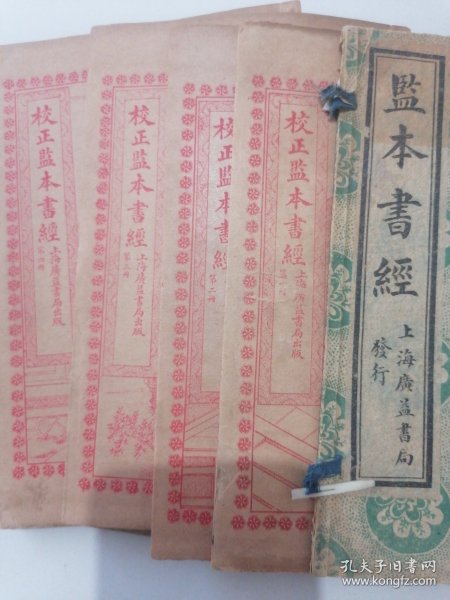 監本書經
上海廣益書局
發行
校正監本書經
上海廣益書局出版
第一冊
校正監本書經
第二冊
校正監本書經
上海廣益書局出版
第三冊
校正監本書經
上海廣益書局出版
第四冊
孔夫子旧书网
www.kongfz.com